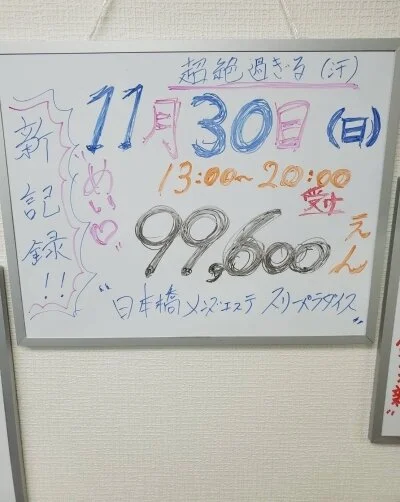 超絶過ぎる(汗)
11月30日(日)
新記録!!
"めい♡"
13:00〜20:00
受付
99,600えん
"日本橋メンズエステ スリーパラダイス"